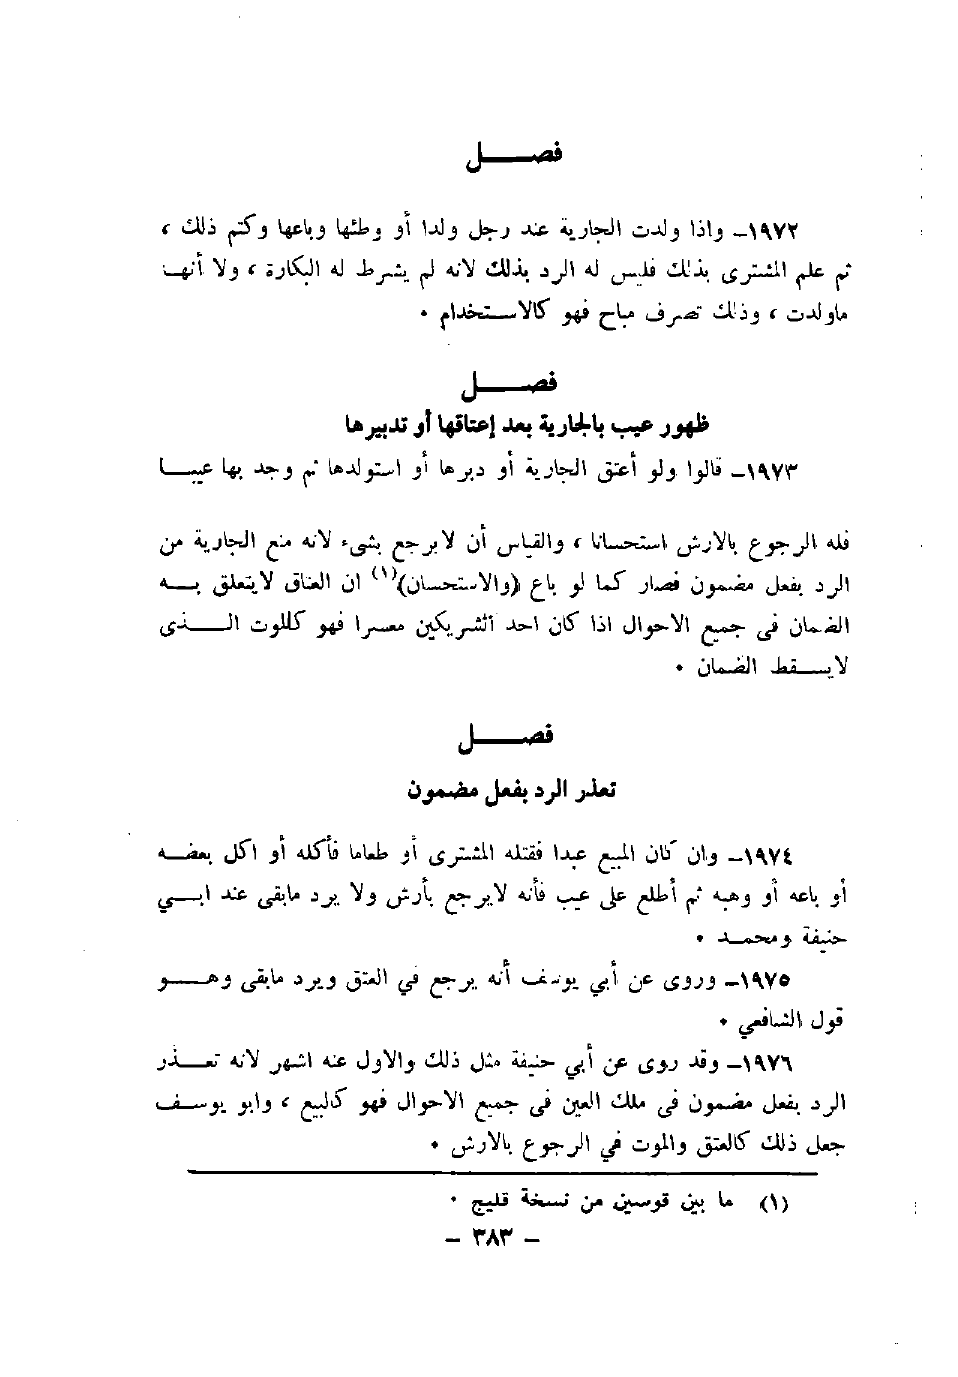 فصــــل
١٩٧٢ـ واذا ولدت الجارية عند رجل ولدا أو وطئها وباعها وكتم ذلك ،
ثم علم المشترى بذلك فليس له الرد بذلك لانه لم يشرط له البكارة ، ولا أنهـا
ماولدت ، وذلك تصرف مباح فهو كالاستخدام ٠
فصــــل
ظهور عيب بالجارية بعد إعتاقها أو تدبيرها
١٩٧٣ـ قالوا ولو أعتق الجارية أو دبرها أو استولدها ثم وجد بها عيبـا
فله الرجوع بالارش استحسانا ، والقياس أن لايرجع بشىء لانه منع الجارية من
الرد بفعل مضمون فصار كما لو باع (والاستحسان)(١) ان العتاق لايتعلق بـه
الضمان فى جميع الاحوال اذا كان احد الشريكين معسرا فهو كالموت الـذى
لايسقط الضمان ٠
فصــــل
تعذر الرد بفعل مضمون
١٩٧٤ـ وان كان المبيع عبدا فقتله المشترى أو طعاما فأكله أو اكل بعضـه
أو باعه أو وهبه ثم أطلع على عيب فأنه لايرجع بأرش ولا يرد مابقى عند ابـي
حنيفة ومحمـد ٠
١٩٧٥ـ وروى عن أبي يوسف أنه يرجع في العتق ويرد مابقى وهـو
قول الشافعي ٠
١٩٧٦ـ وقد روى عن أبي حنيفة مثل ذلك والاول عنه اشهر لانه تعـذر
الرد بفعل مضمون فى ملك العين فى جميع الاحوال فهو كالبيع ، وابو يوسـف
جعل ذلك كالعتق والموت في الرجوع بالارش ٠
(١) ما بين قوسين من نسخة قليج ٠
ـ ٣٨٣ ـ